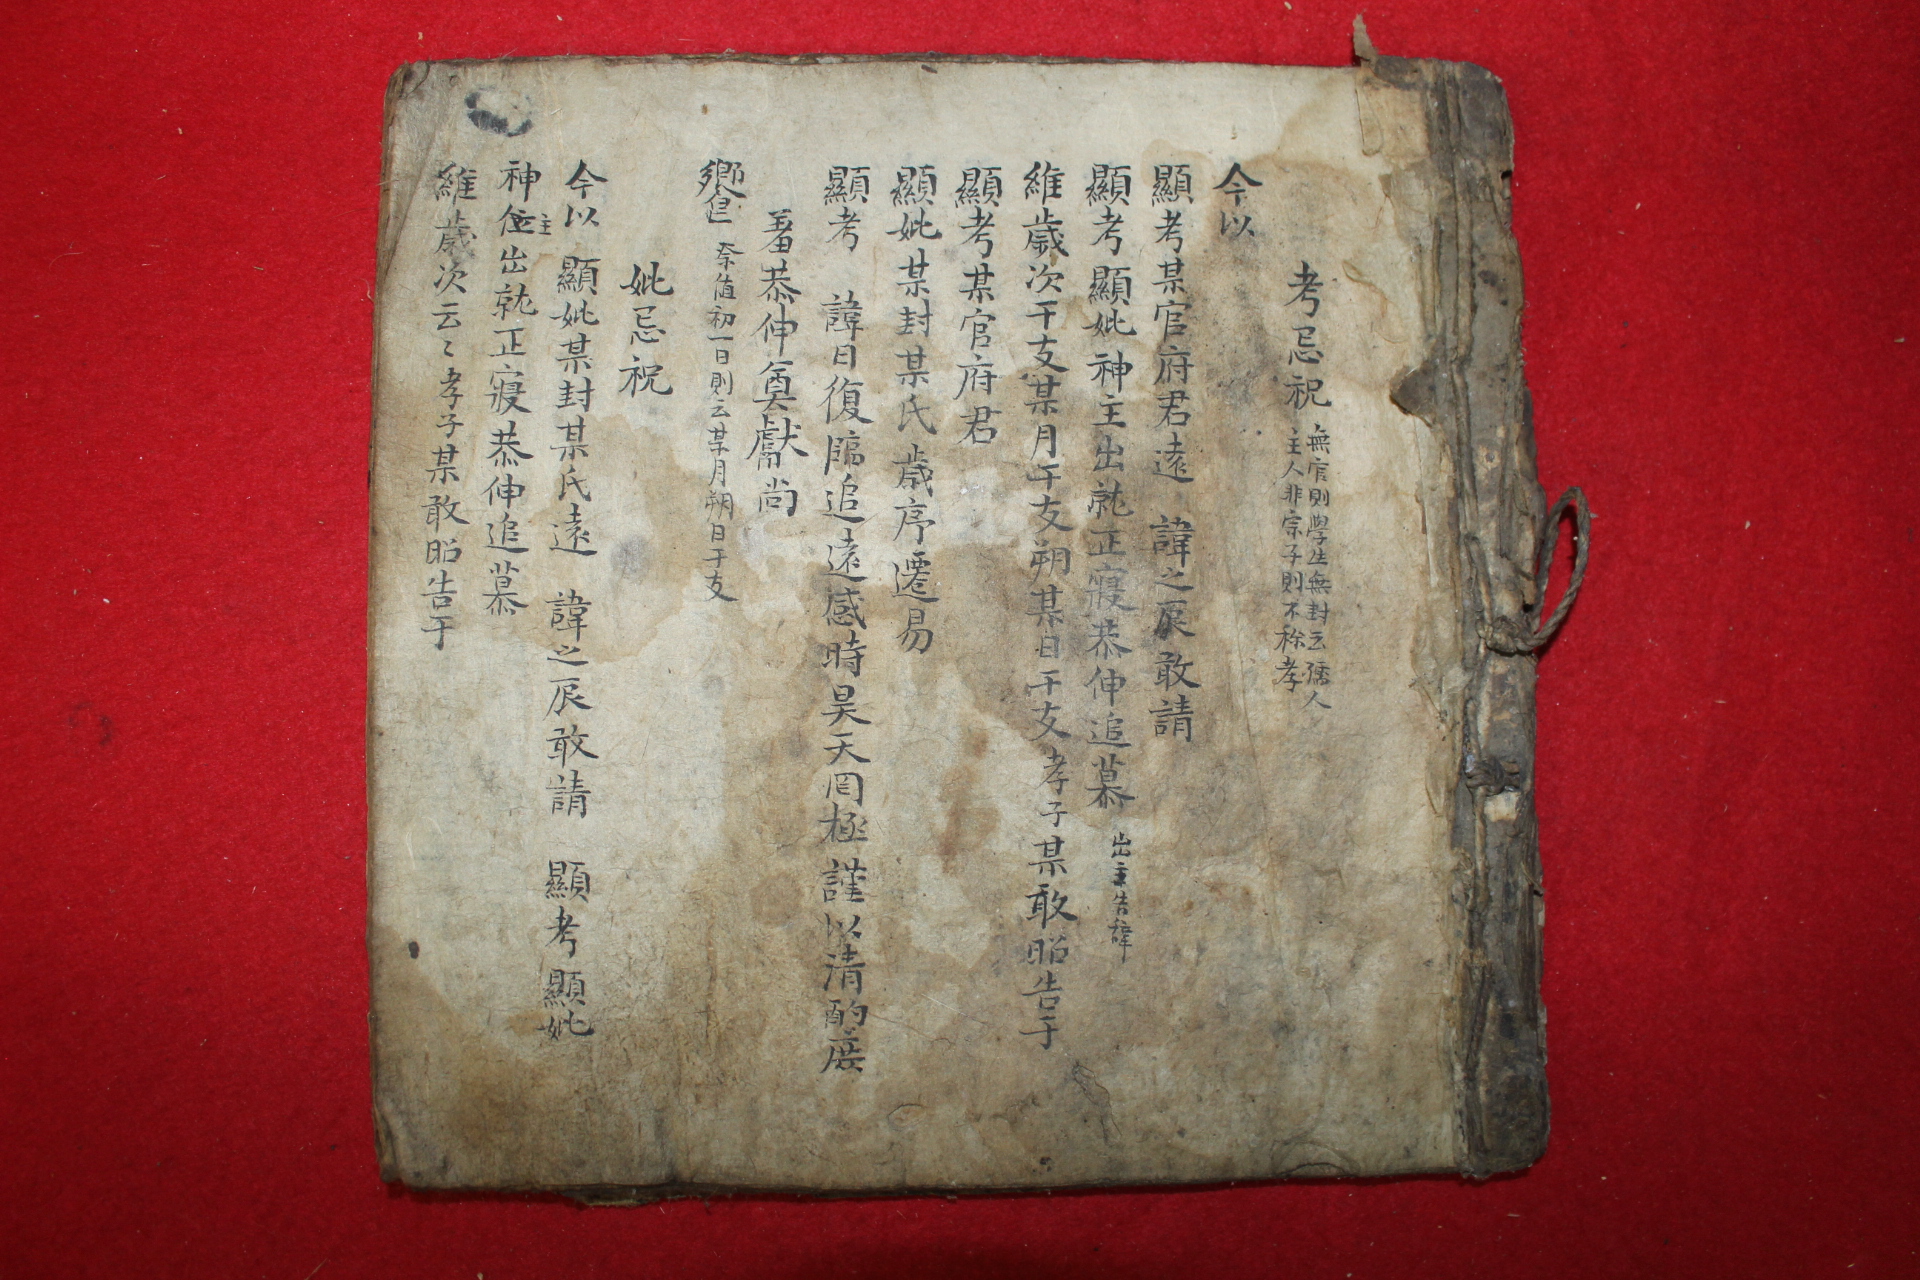 考忌祝 無官則學生無封云孺人
主人非宗子則不称孝
今以
顯考某官府君遠 諱之辰敢請
顯考顯妣神主出就正寢恭伸追慕 出主告諱
維歲次干支某月干支朔某日干支孝子某敢昭告于
顯考某官府君
顯妣某封某氏歲序遷易
顯考 諱日復臨追遠感時昊天罔極謹以清酌庶
羞恭伸奠獻尙
饗 祭值初一日則云某月朔日干支
妣忌祝
今以 顯妣某封某氏遠 諱之辰敢請 顯考顯妣
神主出就正寢恭伸追慕
維歲次云〻孝子某敢昭告于